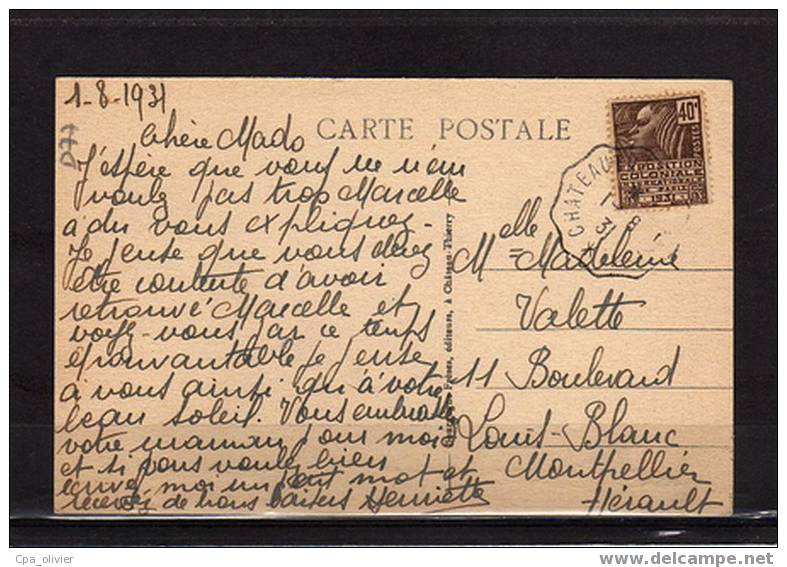 1-8-1931
D77
Chère Mado
CARTE POSTALE
J'espère que vous ne m'en
voulez pas trop Marcelle
a dû vous expliquez.
Je pense que vous devez
être contente d'avoir
retrouvé Marcelle et
voyez-vous par ce temps
épouvantable je pense
à vous ainsi qu'à votre
beau soleil. Vous embrasse
votre maman pour moi
et si vous voulez bien
moi un petit mot et
recevez de bons baisers Henriette
40c
POSTES
EXPOSITION
COLONIALE
INTERNATIONALE
PARIS
1931
CHATEAU
1 8
31
éditeurs, à Château-Thierry
Melle Madeleine
Valette
11 Boulevard
Louis-Blanc
Montpellier
Hérault
Cpa_olivier
www.delcampe.net